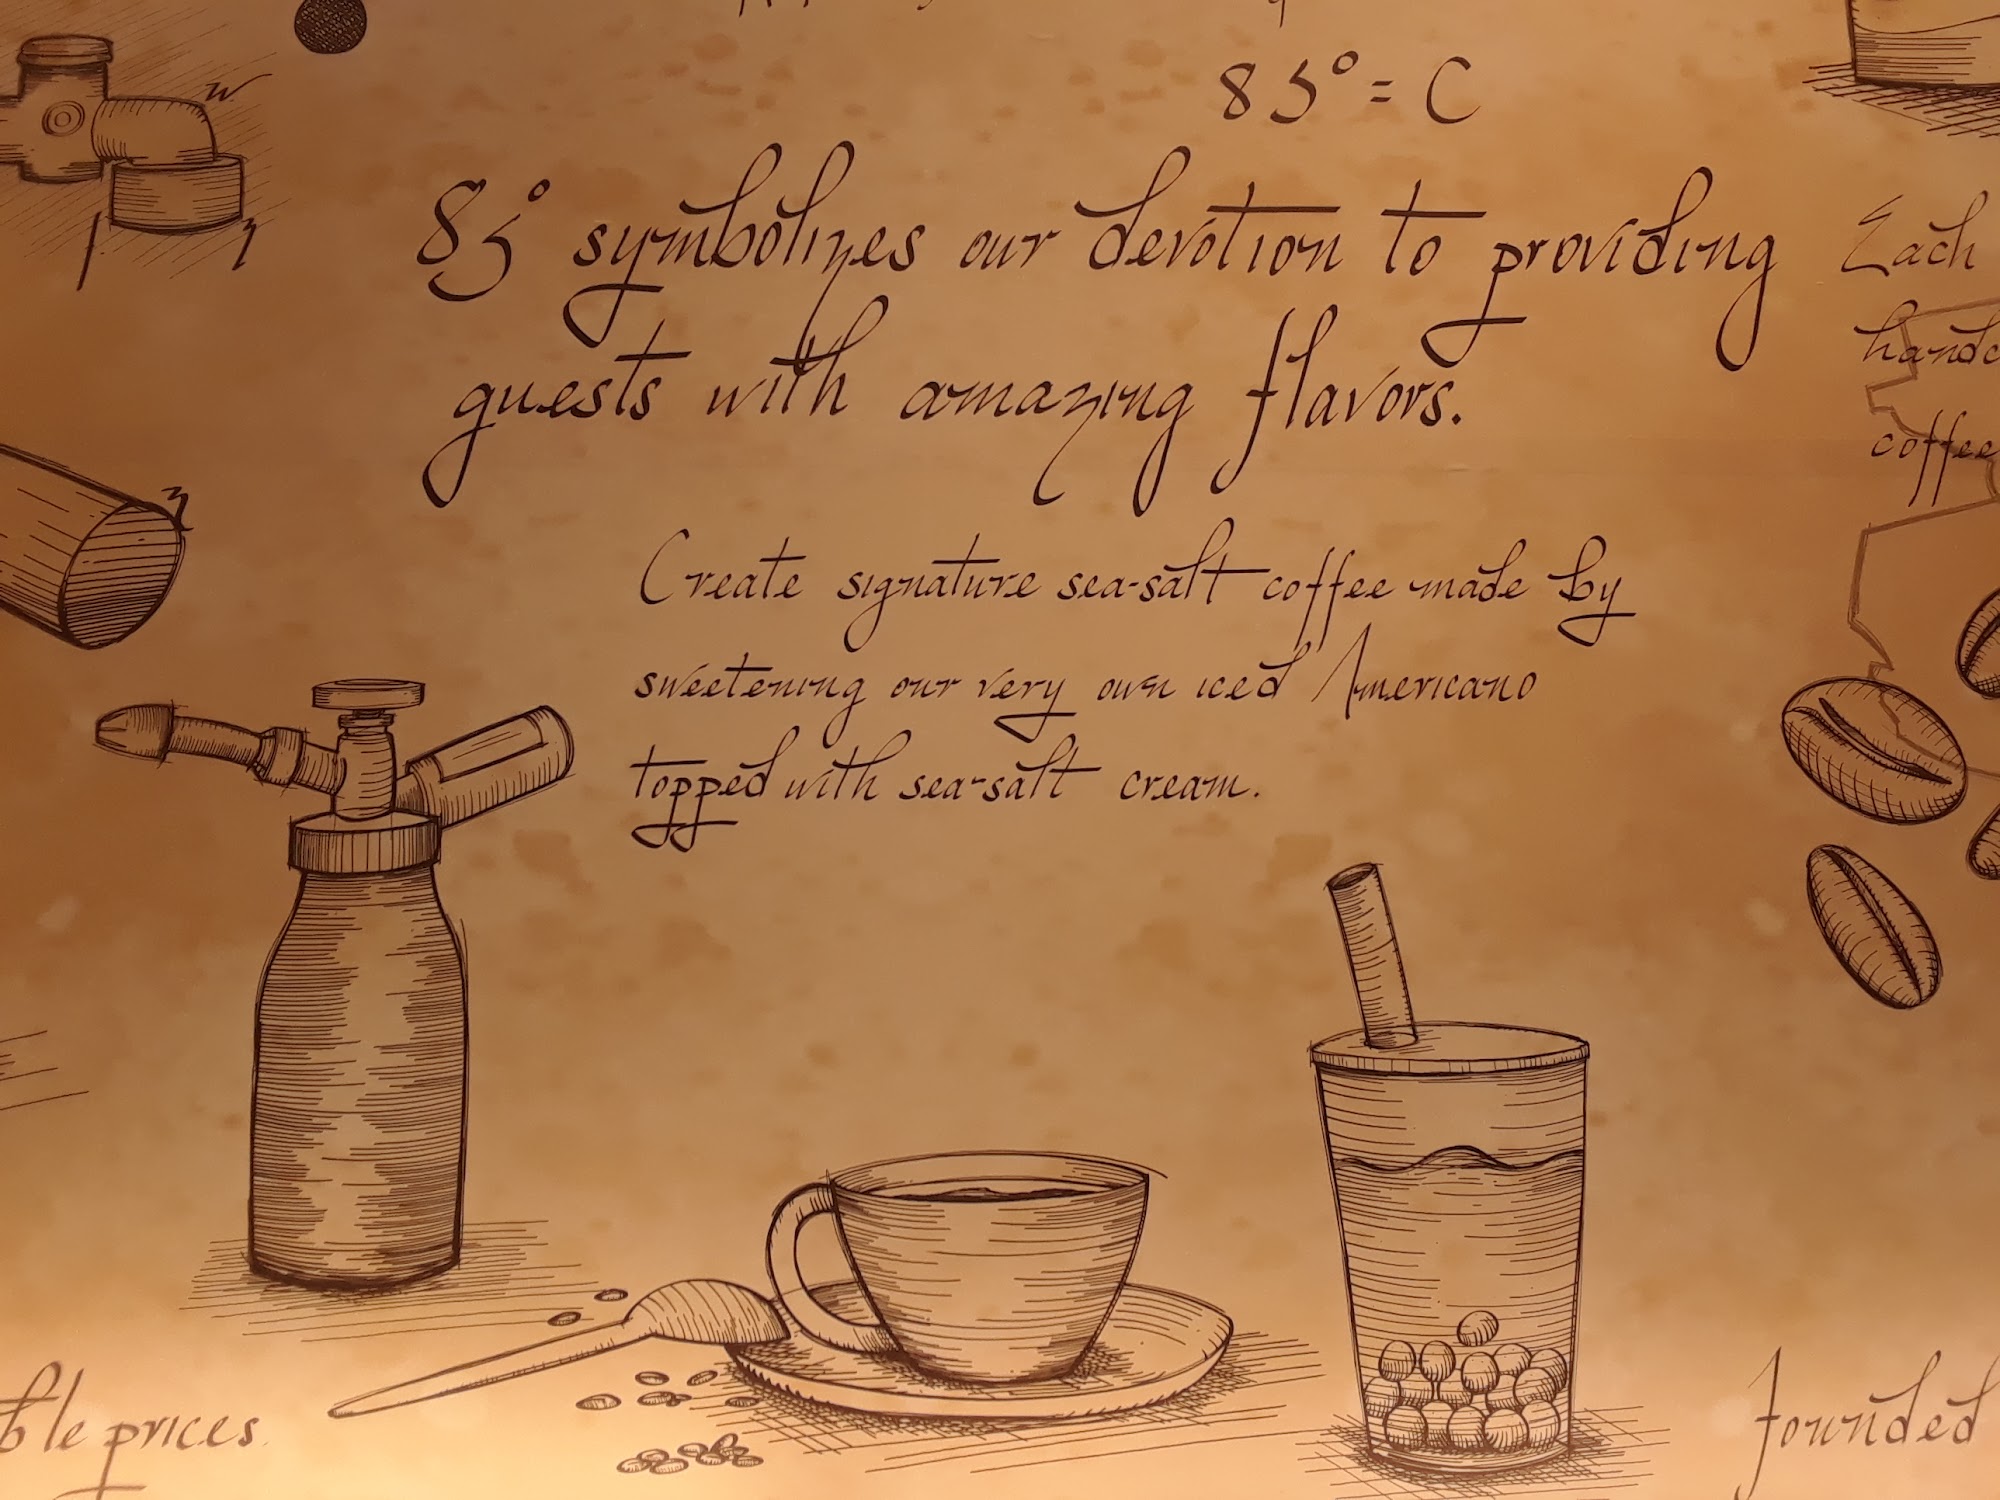 85°=C
85° symbolizes our devotion to providing
guests with amazing flavors.
Each
coffee
Create signature sea-salt coffee made by
sweetening our very own iced Americano
topped with sea-salt cream.
prices.
founded